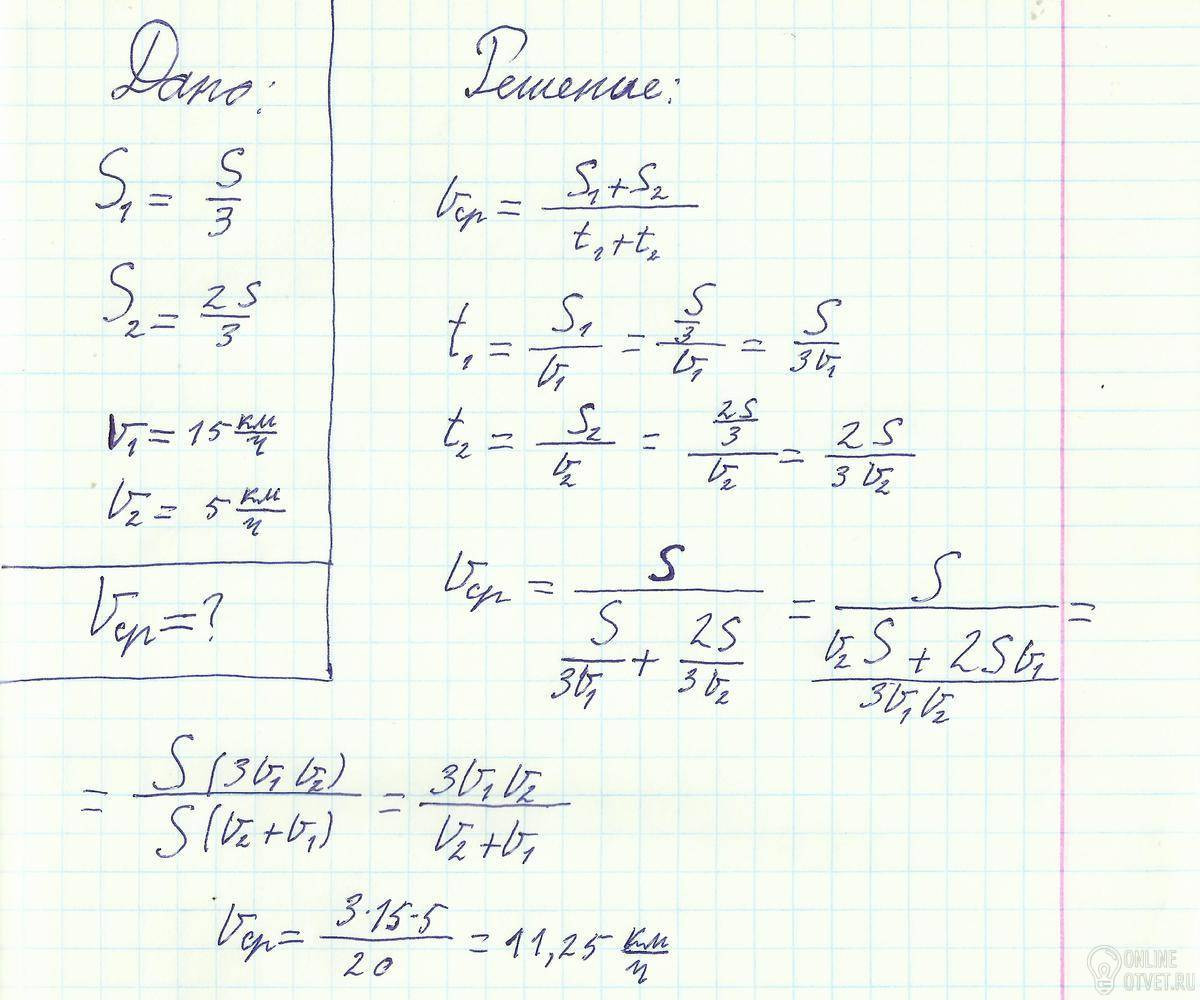 Дано:
S₁ = S/3
S₂ = 2S/3
V₁ = 15 км/ч
V₂ = 5 км/ч
Vср = ?
Решение:
Vср = (S₁ + S₂)/(t₁ + t₂)
t₁ = S₁/V₁ = (S/3)/V₁ = S/(3V₁)
t₂ = S₂/V₂ = (2S/3)/V₂ = 2S/(3V₂)
Vср = S/(S/(3V₁) + 2S/(3V₂)) = S/((V₂S + 2SV₁)/(3V₁V₂)) =
= S(3V₁V₂)/(S(V₂ + V₁)) = 3V₁V₂/(V₂ + V₁)
Vср = (3·15·5)/20 = 11,25 км/ч
ONLINE
OTVET.RU